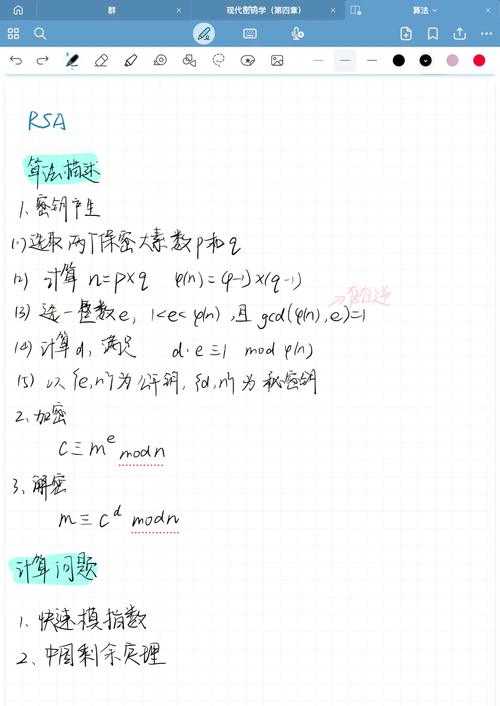 群 现代密码学（第四章） 算法
RSA
算法描述
1、密钥产生
(1) 选取两个保密大素数p和q
(2) 计算 n=p×q φ(n)=(p-1)×(q-1)
→存在逆
(3) 选一整数e，1<e<φ(n)，且 gcd(φ(n),e)=1
(4) 计算d，满足 d·e≡1 mod φ(n)
(5) 以{e,n}为公开钥，{d,n}为秘密钥
2、加密
C≡m^e mod n
3、解密
m≡C^d mod n
计算问题
1、快速模指数
2、中国剩余定理